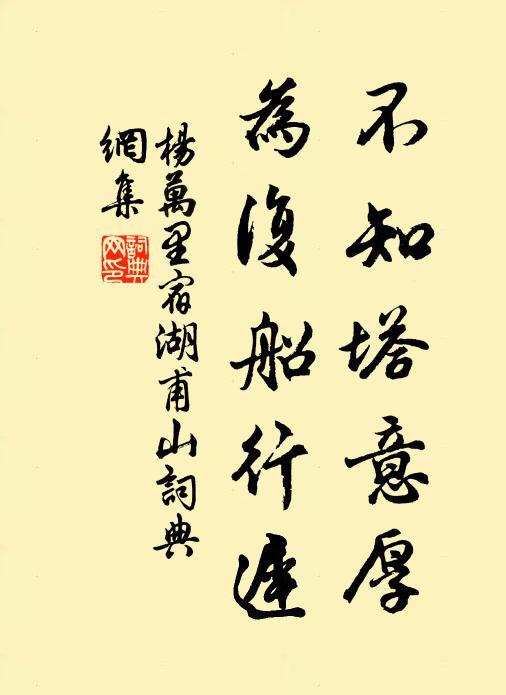 不知塔意厚
為復船行遲
楊萬里宿湖甫山詞典
網集
詞典网印